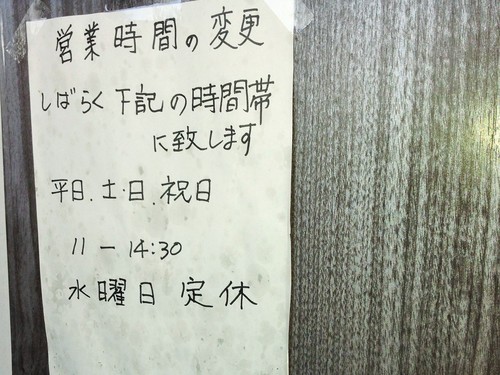 営業時間の変更
しばらく下記の時間帯
に致します
平日.土.日.祝日
11 ー 14:30
水曜日 定休